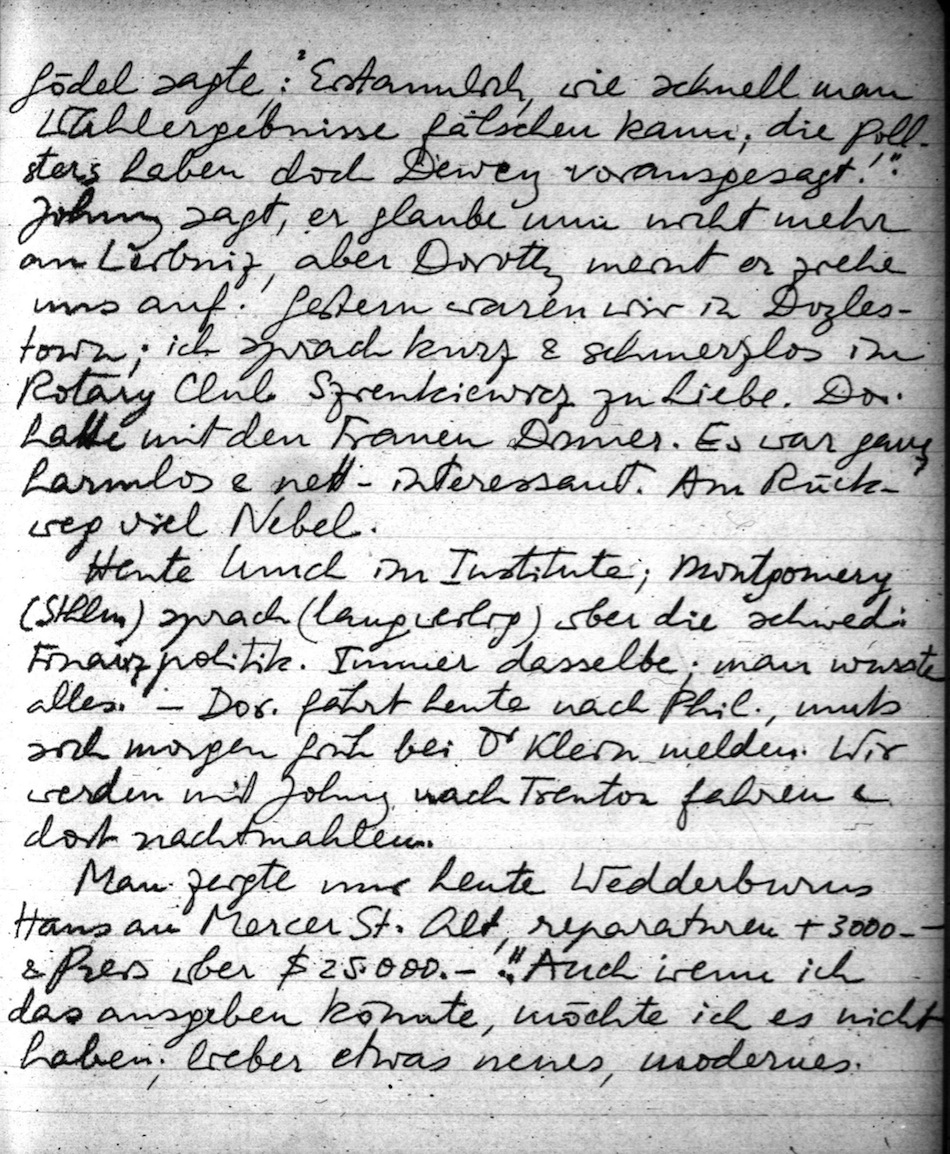 Gödel sagte: "Erstaunlich, wie schnell man
Wahlergebnisse fälschen kann; die Poll-
sters haben doch Dewey vorausgesagt!".
Johnny sagt, er glaube nun nicht mehr
an Leibniz, aber Dorothy meint er ziehe
uns auf. Gestern waren wir in Doyles-
town; ich sprach kurz & schmerzlos im
Rotary Club Szenkiewicz zu Liebe. Dor.
hatte mit den Frauen Dinner. Es war ganz
harmlos & nett - interessant. Am Rück-
weg viel Nebel.
Heute lunch im Institute; Montgomery
(Sthlm) sprach (langweilig) über die schwed.
Finanzpolitik. Immer dasselbe; man wusste
alles. – Dor. fährt heute nach Phil., muss
sich morgen früh bei Dr Klein melden. Wir
werden mit Johnny nach Trenton fahren &
dort nachtmahlen.
Man zeigte mir heute Wedderburns
Haus an Mercer St. Alt, reparaturen + 3000.–
& Preis über $ 25.000.– !! Auch wenn ich
das ausgeben könnte, möchte ich es nicht
haben; lieber etwas neues, modernes.